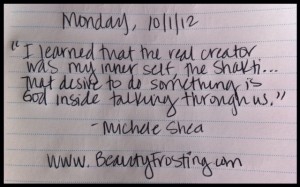 Monday, 10/1/12
"I learned that the real creator
was my inner self, the Shakti...
That desire to do something is
God inside talking through us."
- Michele Shea
www.BeautyFrosting.com